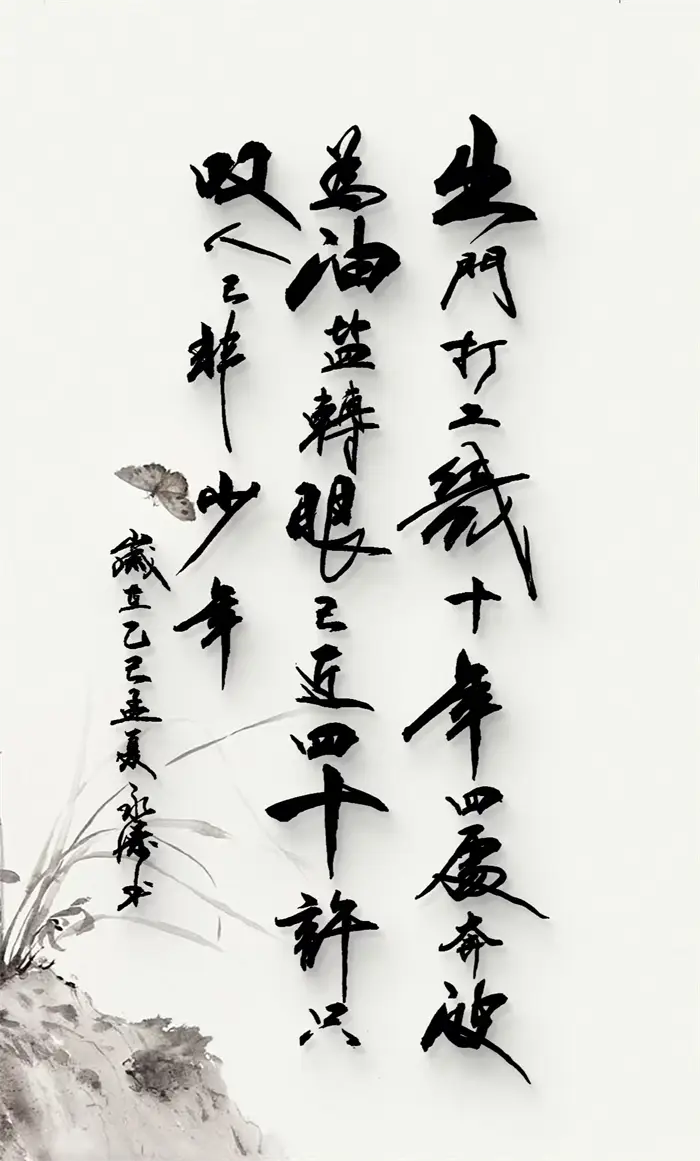 出門打工幾十年四處奔波
為油盐轉眼已近四十許只
叹人已非少年
歲在乙巳孟夏永濤书